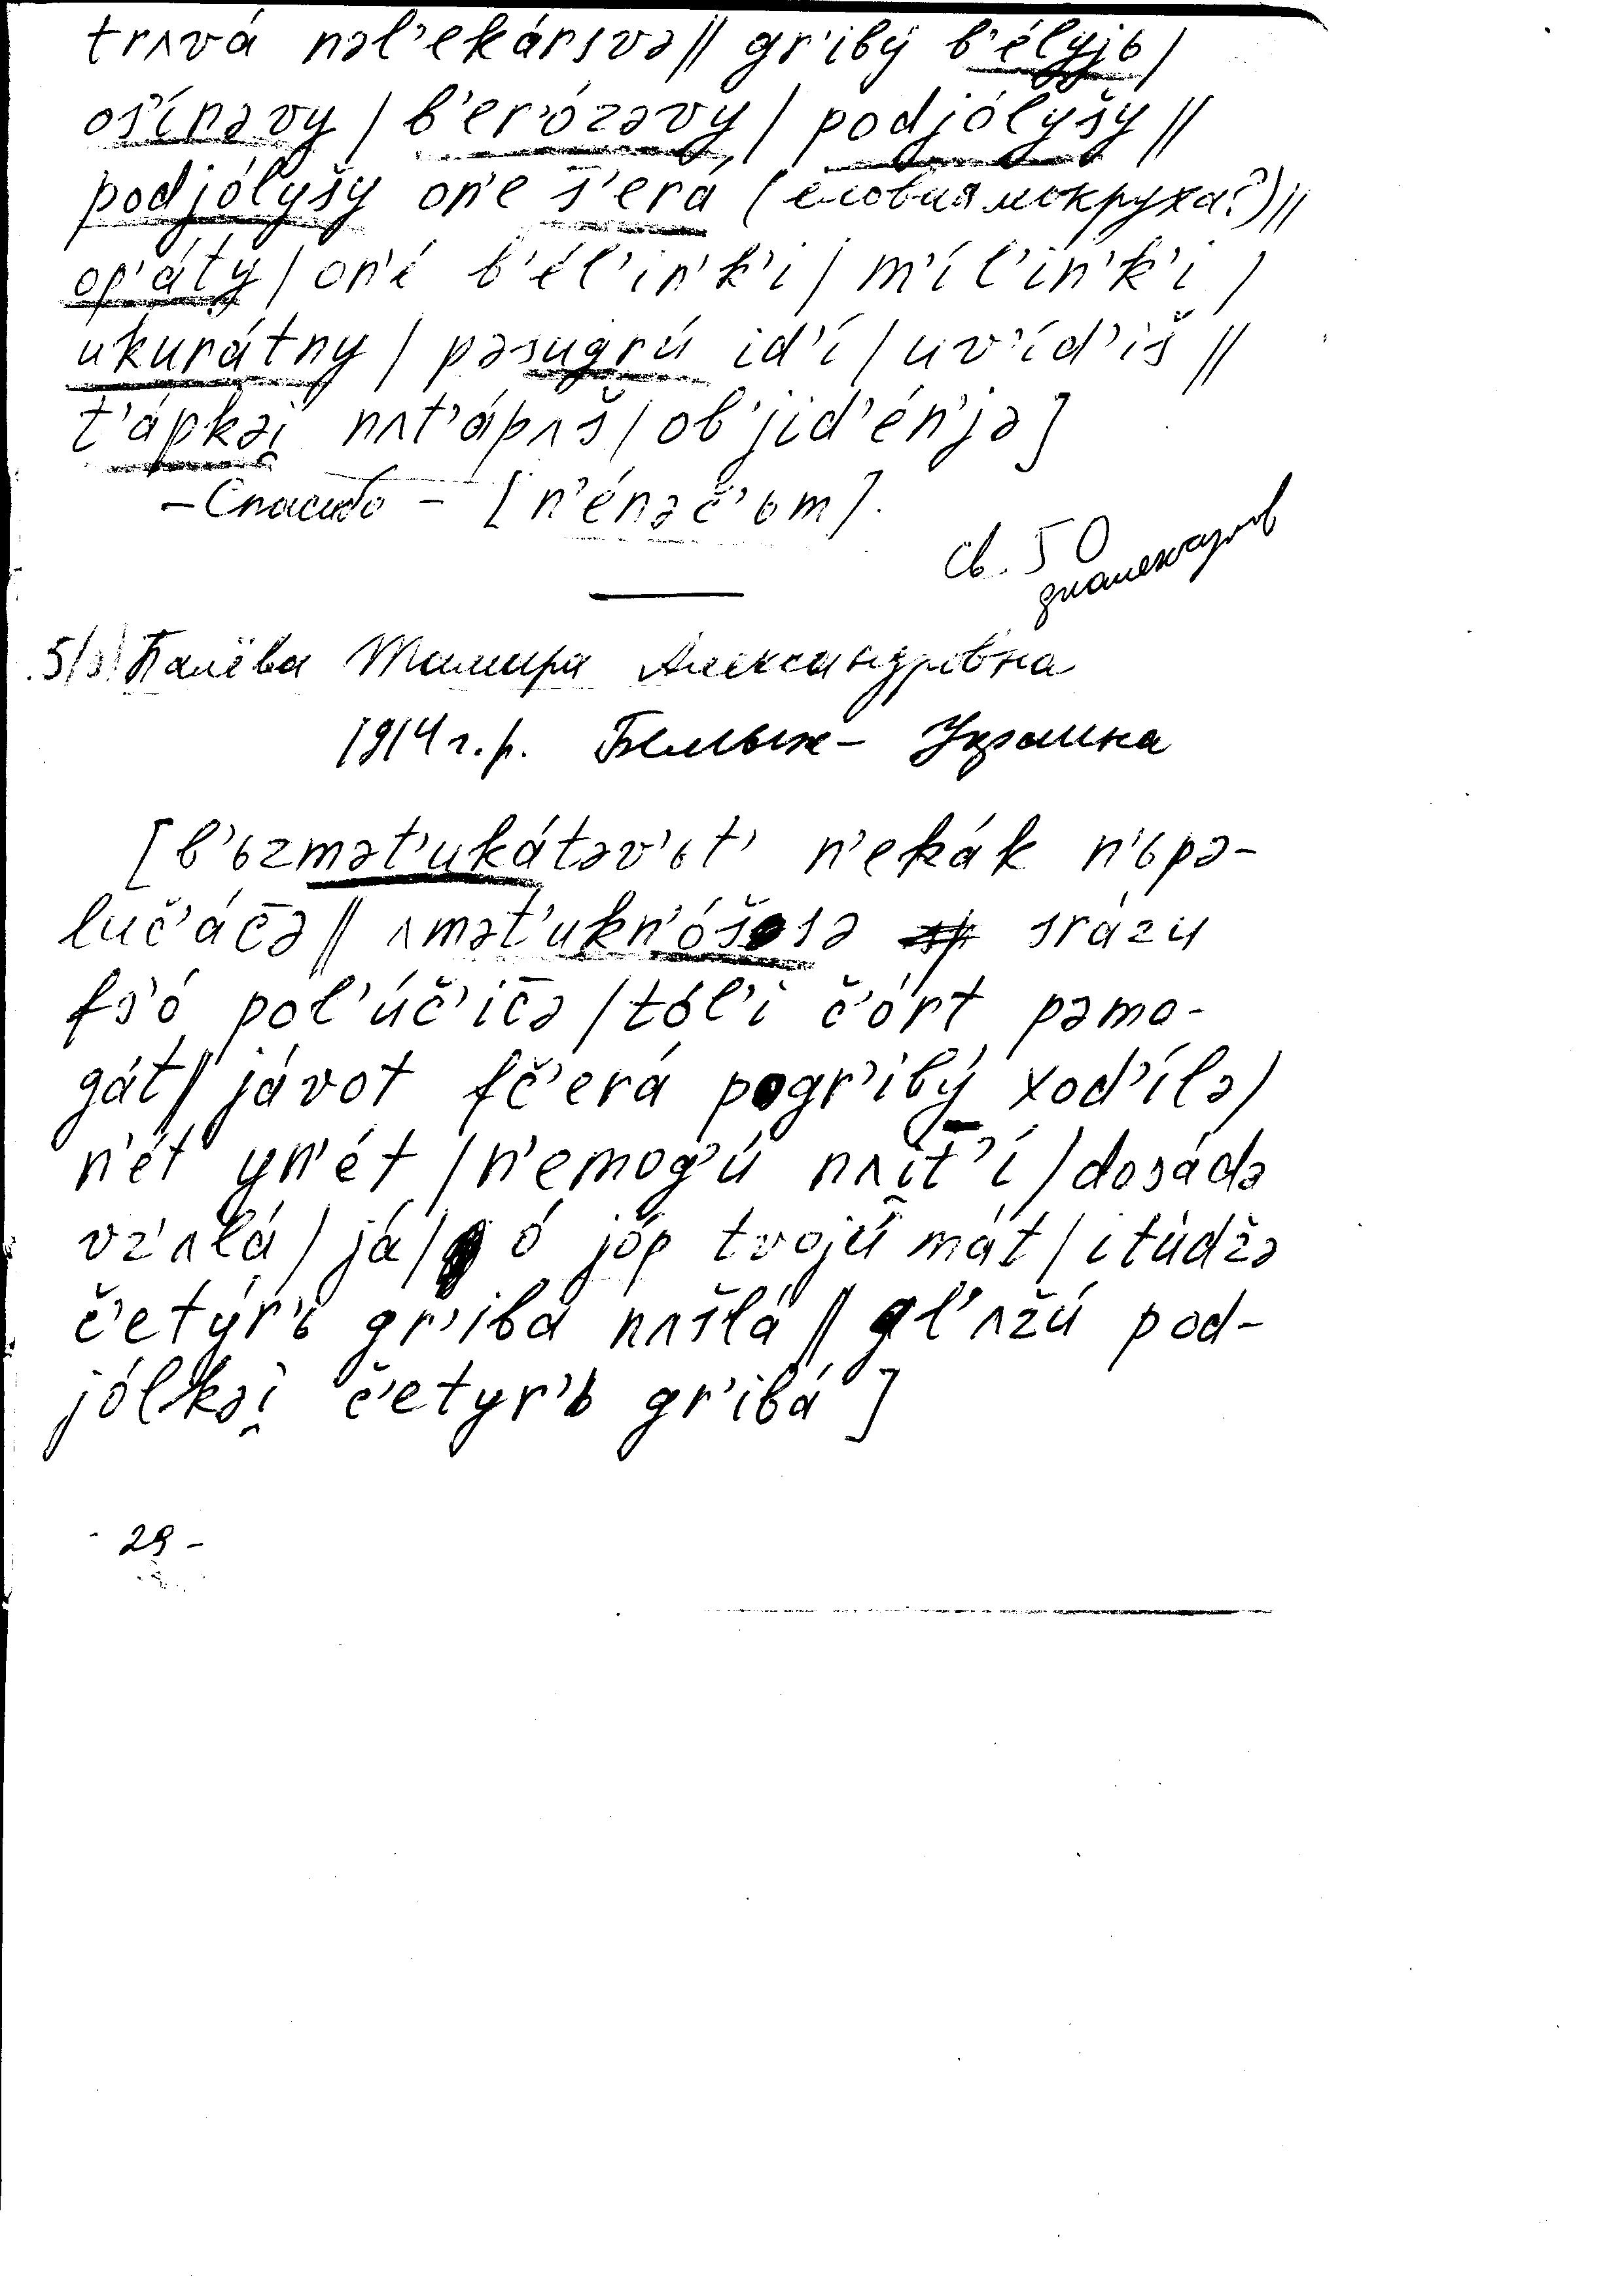 trʌvá nəl'ekársvə// gr'ibý b'élyjь/
os'ínəvy / b'er'ózəvy / podjólyšy //
podjólyšy on'e s'erá (еловая мокруха?)//
op'áty / on'é b'él'in'k'i / m'íl'in'k'i /
ukurátny / pəsugrú id'í / uv'íd'iš //
t'ápkəi̯ nʌt'ápʌš / ob'jid'én'jə]
– Спасибо – [n'énəč'ьm].
Св. 50
диалектизмов
5/э/ Балёва Тамара Александровна
1914 г.р. – Украина
[b'ьzmət'ukátəv'ьt' n'ekák n'ьpə-
luč'ác̄ə // ʌmət'ukn'óšsə srázu
fs'ó pol'úč'ic̄ə / tól'i č'órt pəmo-
gát // jávot fč'erá pogr'ibý xod'ílə /
n'ét yn'ét / n'emog'ú nʌit̄'í / dosádə
vz'ʌlá / já / ó jóp tvojú mát / itúdžə
č'etýr'ь gr'ibá nʌšlá // gl'ʌžú pod-
jólkəi̯ č'etyr'ь gr'ibá]
- 29 -